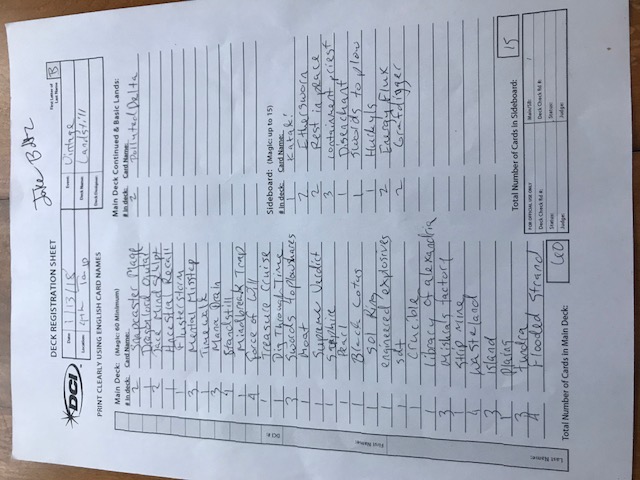 Jake Boltz
DECK REGISTRATION SHEET
DCI
First Letter of Last Name B
Date: 1/13/18
Location: 4th Top 10
Event: Vintage
Deck Name: Landstill
Deck Designer:
PRINT CLEARLY USING ENGLISH CARD NAMES
Main Deck: (Magic: 60 Minimum)
# in deck: Card Name:
2 Snapcaster Mage
1 Dragonlord Ojutai
2 Jace Mind Sculpt
1 Ancestral Recall
1 Flusterstorm
3 Mental Misstep
1 Timewalk
3 Mana Drain
4 Standstill
1 Mindbreak Trap
4 Force of Will
1 Treasure Cruise
1 Dig Through Time
3 Swords to plowshares
1 Moat
1 Supreme Verdict
1 Sapphire
1 Pearl
1 Black Lotus
1 Sol Ring
1 engineered explosives
1 sdt
1 Crucible
1 Library of alexandria
3 Mishras factory
1 Strip Mine
4 Wasteland
3 Island
1 Plains
3 Tundra
4 Flooded Strand
Total Number of Cards in Main Deck: 60
Main Deck Continued & Basic Lands:
# in deck: Card Name:
2 Polluted Delta
Sideboard: (Magic: up to 15)
# in deck: Card Name:
1 Kataki
2 Ethersworn
2 Rest in peace
3 containment priest
1 Disenchant
1 Swords to plow
1 Hurkyls
2 Energy Flux
2 Grafdigger
Total Number of Cards in Sideboard: 15
FOR OFFICIAL USE ONLY
Main/SB: /
Deck Check Rd #:
Deck Check Rd #:
Status:
Status:
Judge:
Judge:
DCI #:
First Name:
Last Name: